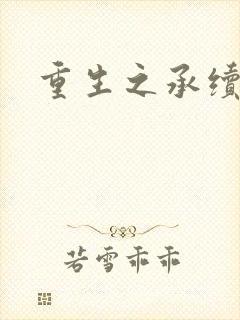 重生之承续
若雪乖乖